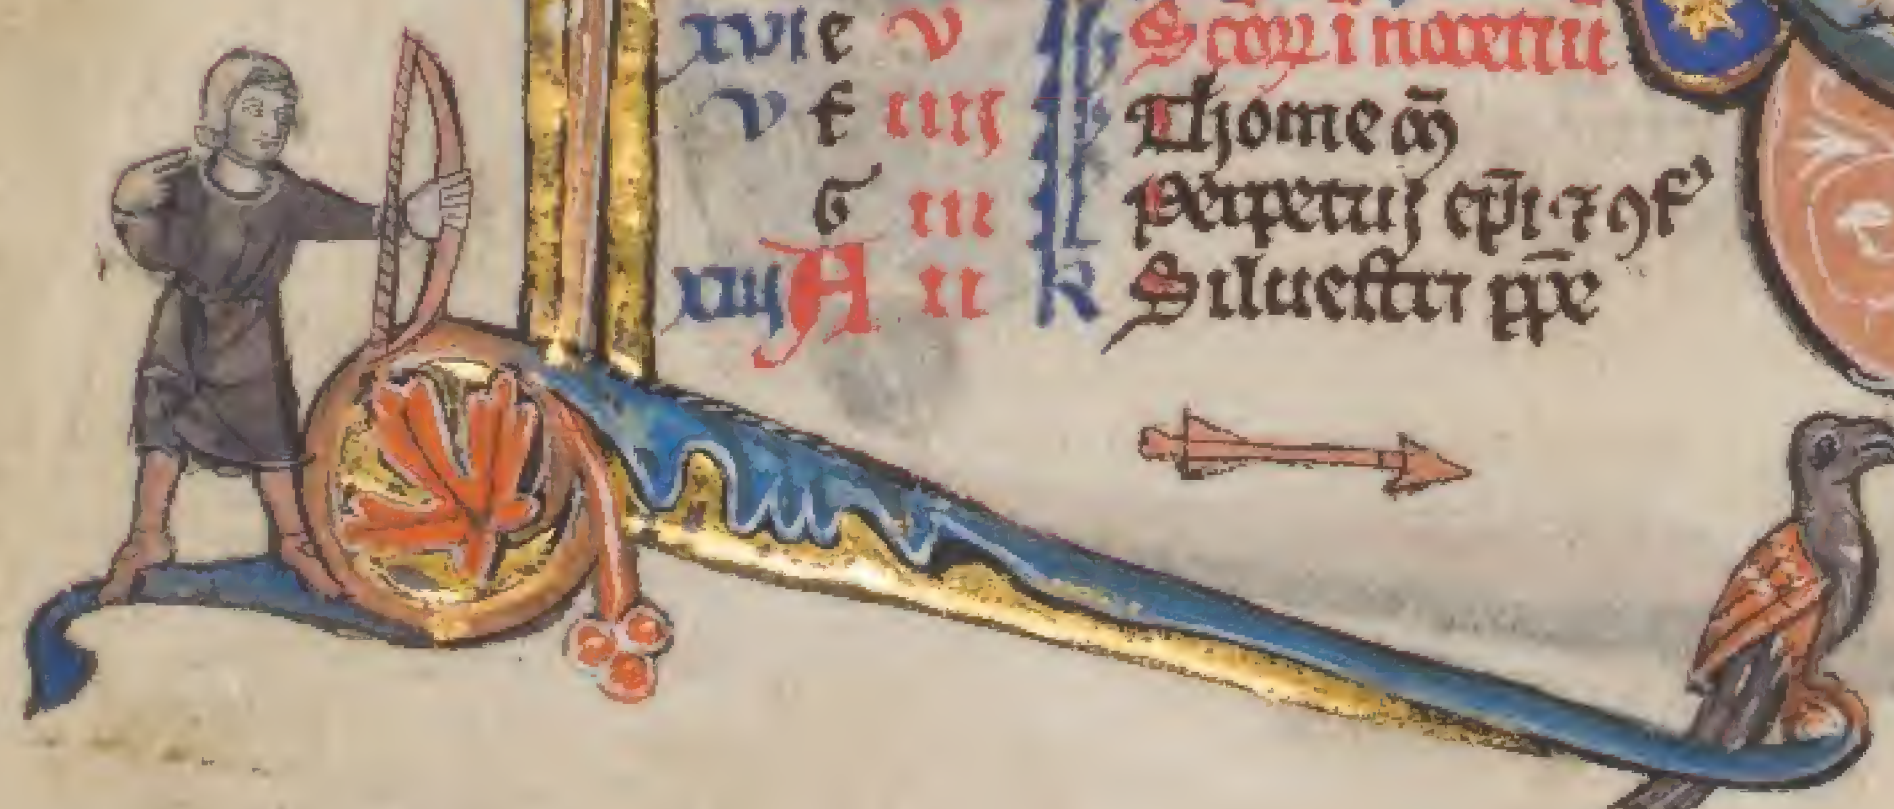 xvi e v kl Scoꝝ inocentiū
v f iiij kl Thome m̄
g iii kl Perpetuj ep̄i ⁊ ꝯf'
xiij A ii kl Siluestri pp̄e